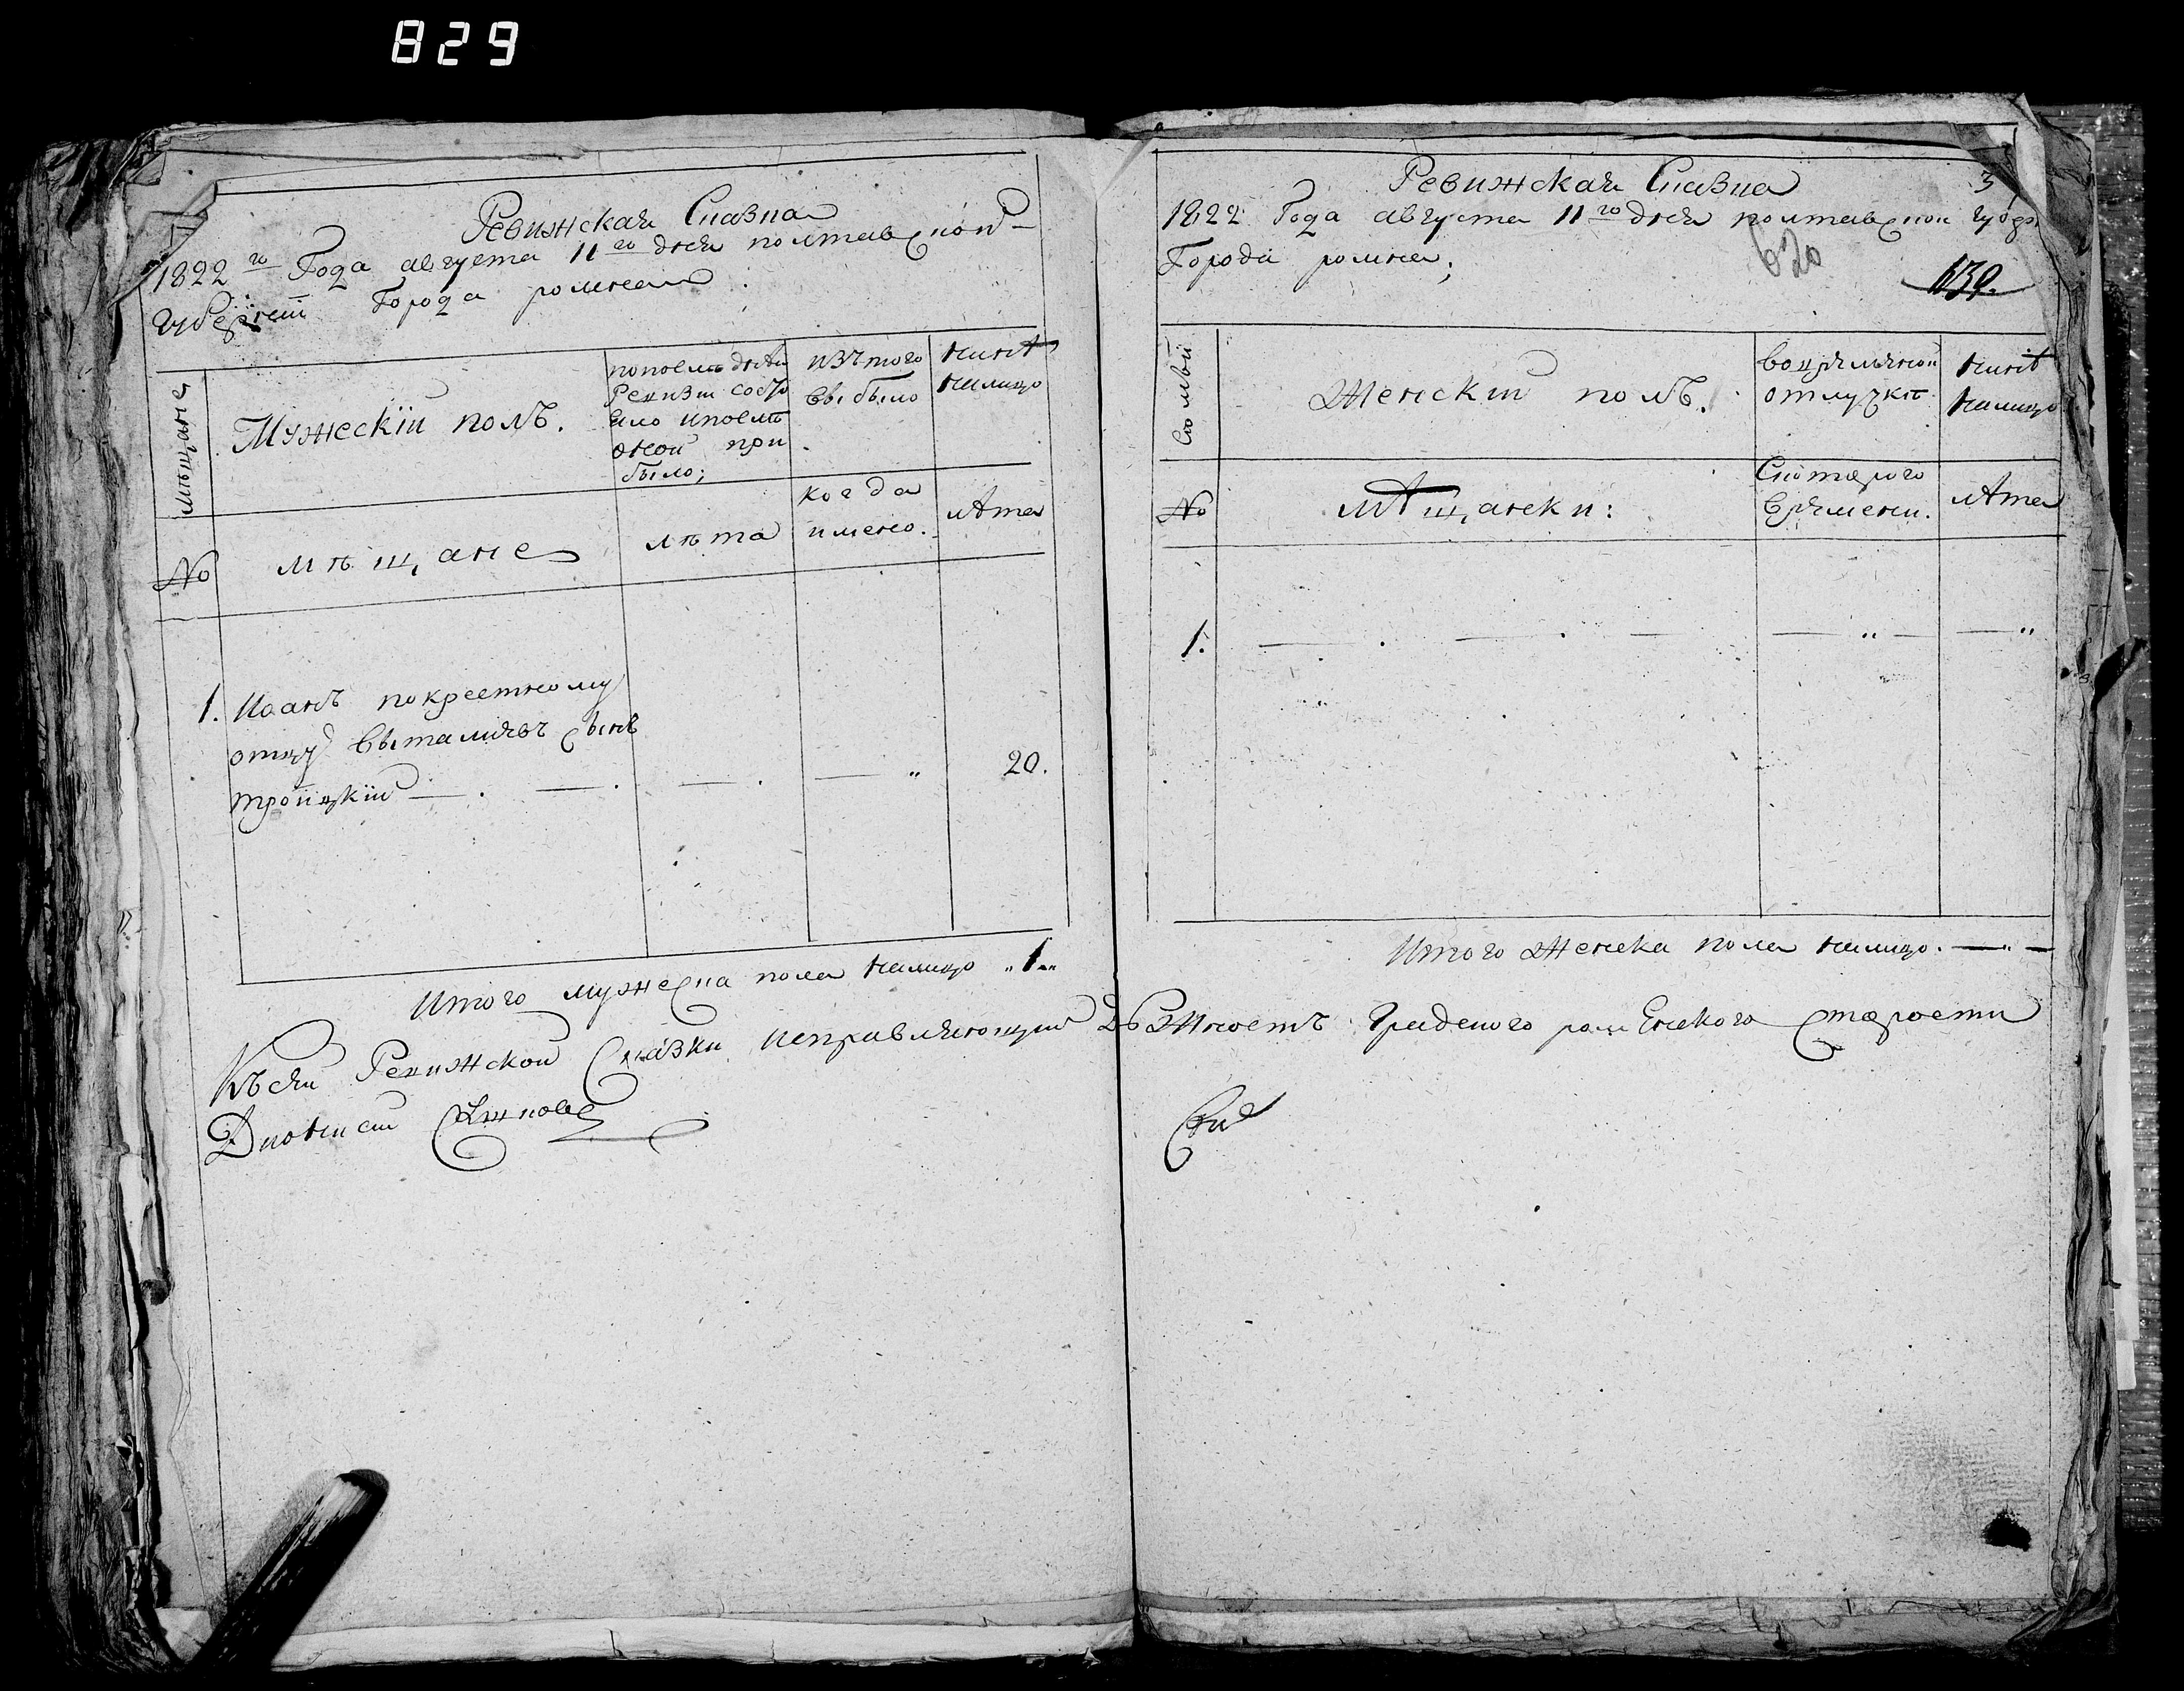 829
Ревижская Сказка
1822 го Года августа 11 го дня полтавской
губернiи Города ромна
мѣщане
Мужескiй полъ.
попослѣдней
Ревизiи состо
яло ипослѣ
оной при
было;
изъ того
выбыло
нинѣ
налицо
No
мѣщане
лѣта
когда
имено.
лѣта
1. Иоанъ покрестному
отцу Виталиевъ сынъ
тройцкiй — . — . — . — „ 20.
Итого мужеска пола налицо „1„
Ревижская Сказка
3
1822 Года августа 11 го дня полтавской губер
Города ромна;
620
1139.
Женскiй полъ.
вовремѣной
отлучкѣ
нинѣ
налицо
No
мѣщанки:
Скоторого
времени.
лѣта
1. — . — . — — „ — — „
Итого женска пола налицо. — „ —
Ксей Ревижской Сказки исправляющий должность Градского роменского старости